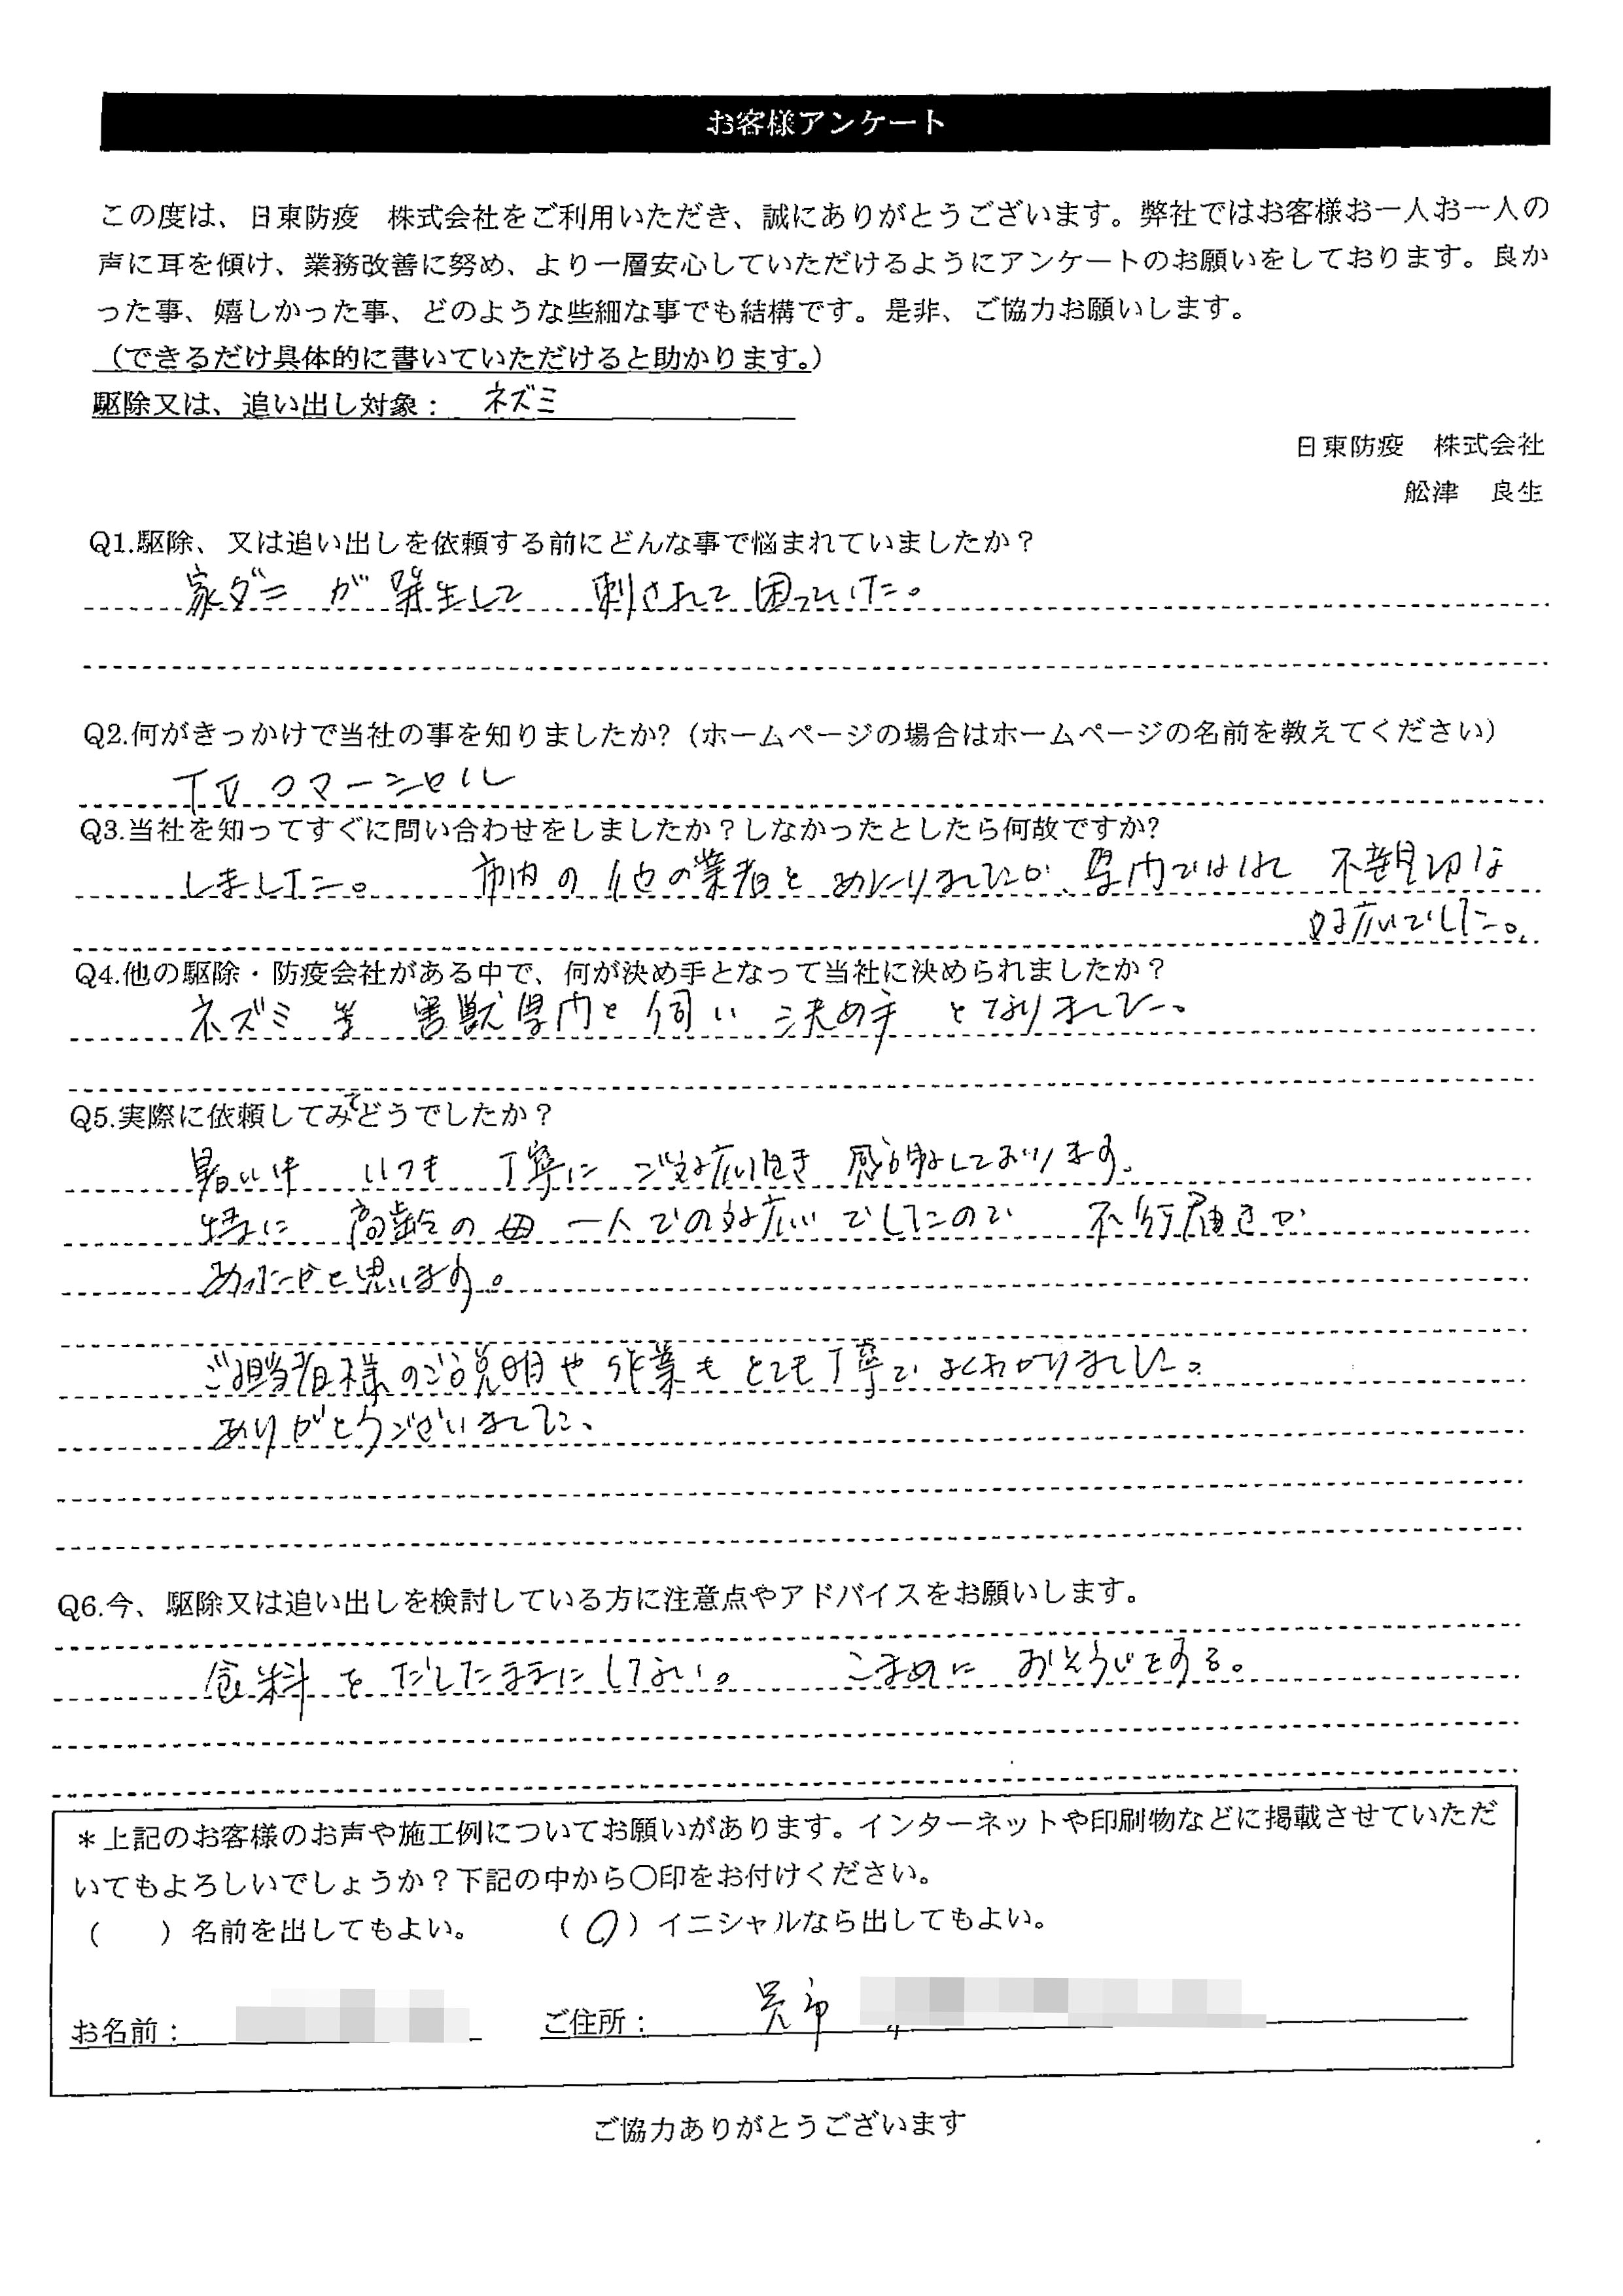 お客様アンケート
この度は、日東防疫　株式会社をご利用いただき、誠にありがとうございます。弊社ではお客様お一人お一人の
声に耳を傾け、業務改善に努め、より一層安心していただけるようにアンケートのお願いをしております。良か
った事、嬉しかった事、どのような些細な事でも結構です。是非、ご協力お願いします。
（できるだけ具体的に書いていただけると助かります。）
駆除又は、追い出し対象：　ネズミ
日東防疫　株式会社
舩津　良生
Q1.駆除、又は追い出しを依頼する前にどんな事で悩まれていましたか？
家ダニ が 発生して 刺されて 困っていた。
Q2.何がきっかけで当社の事を知りましたか?（ホームページの場合はホームページの名前を教えてください）
TV コマーシャル
Q3.当社を知ってすぐに問い合わせをしましたか？しなかったとしたら何故ですか?
しました。 市内の他の業者と あたりましたが、専門ではなく 不親切な
対応でした。
Q4.他の駆除・防疫会社がある中で、何が決め手となって当社に決められましたか？
ネズミ 等 害獣専門と 伺い 決め手 となりました。
Q5.実際に依頼してみてどうでしたか？
暑い中 いつも 丁寧に ご対応頂き 感謝しております。
特に 高齢の母 一人での対応 でしたので 不行届きが
あったかと思います。
ご担当者様のご説明や 作業も とても丁寧で よくわかりました。
ありがとうございました、
Q6.今、駆除又は追い出しを検討している方に注意点やアドバイスをお願いします。
食料を だしたままにしない。 こまめに おそうじをする。
＊上記のお客様のお声や施工例についてお願いがあります。インターネットや印刷物などに掲載させていただ
いてもよろしいでしょうか？下記の中から〇印をお付けください。
（　　）名前を出してもよい。　　（〇）イニシャルなら出してもよい。
お名前：　ご住所：　呉市
ご協力ありがとうございます